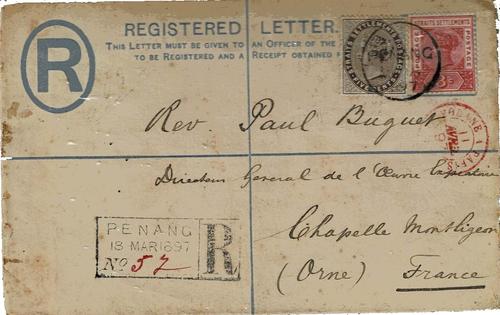 R
REGISTERED LETTER.
THIS LETTER MUST BE GIVEN TO AN OFFICER OF THE
TO BE REGISTERED AND A RECEIPT OBTAINED F
STRAITS SETTLEMENTS
POSTAGE
POSTAGE
Rev Paul Buguet
Directeur General de l'Œuvre Expiatoire
Chapelle Montligeon
(Orne) France
PENANG
18 MAR 1897
No 57
R